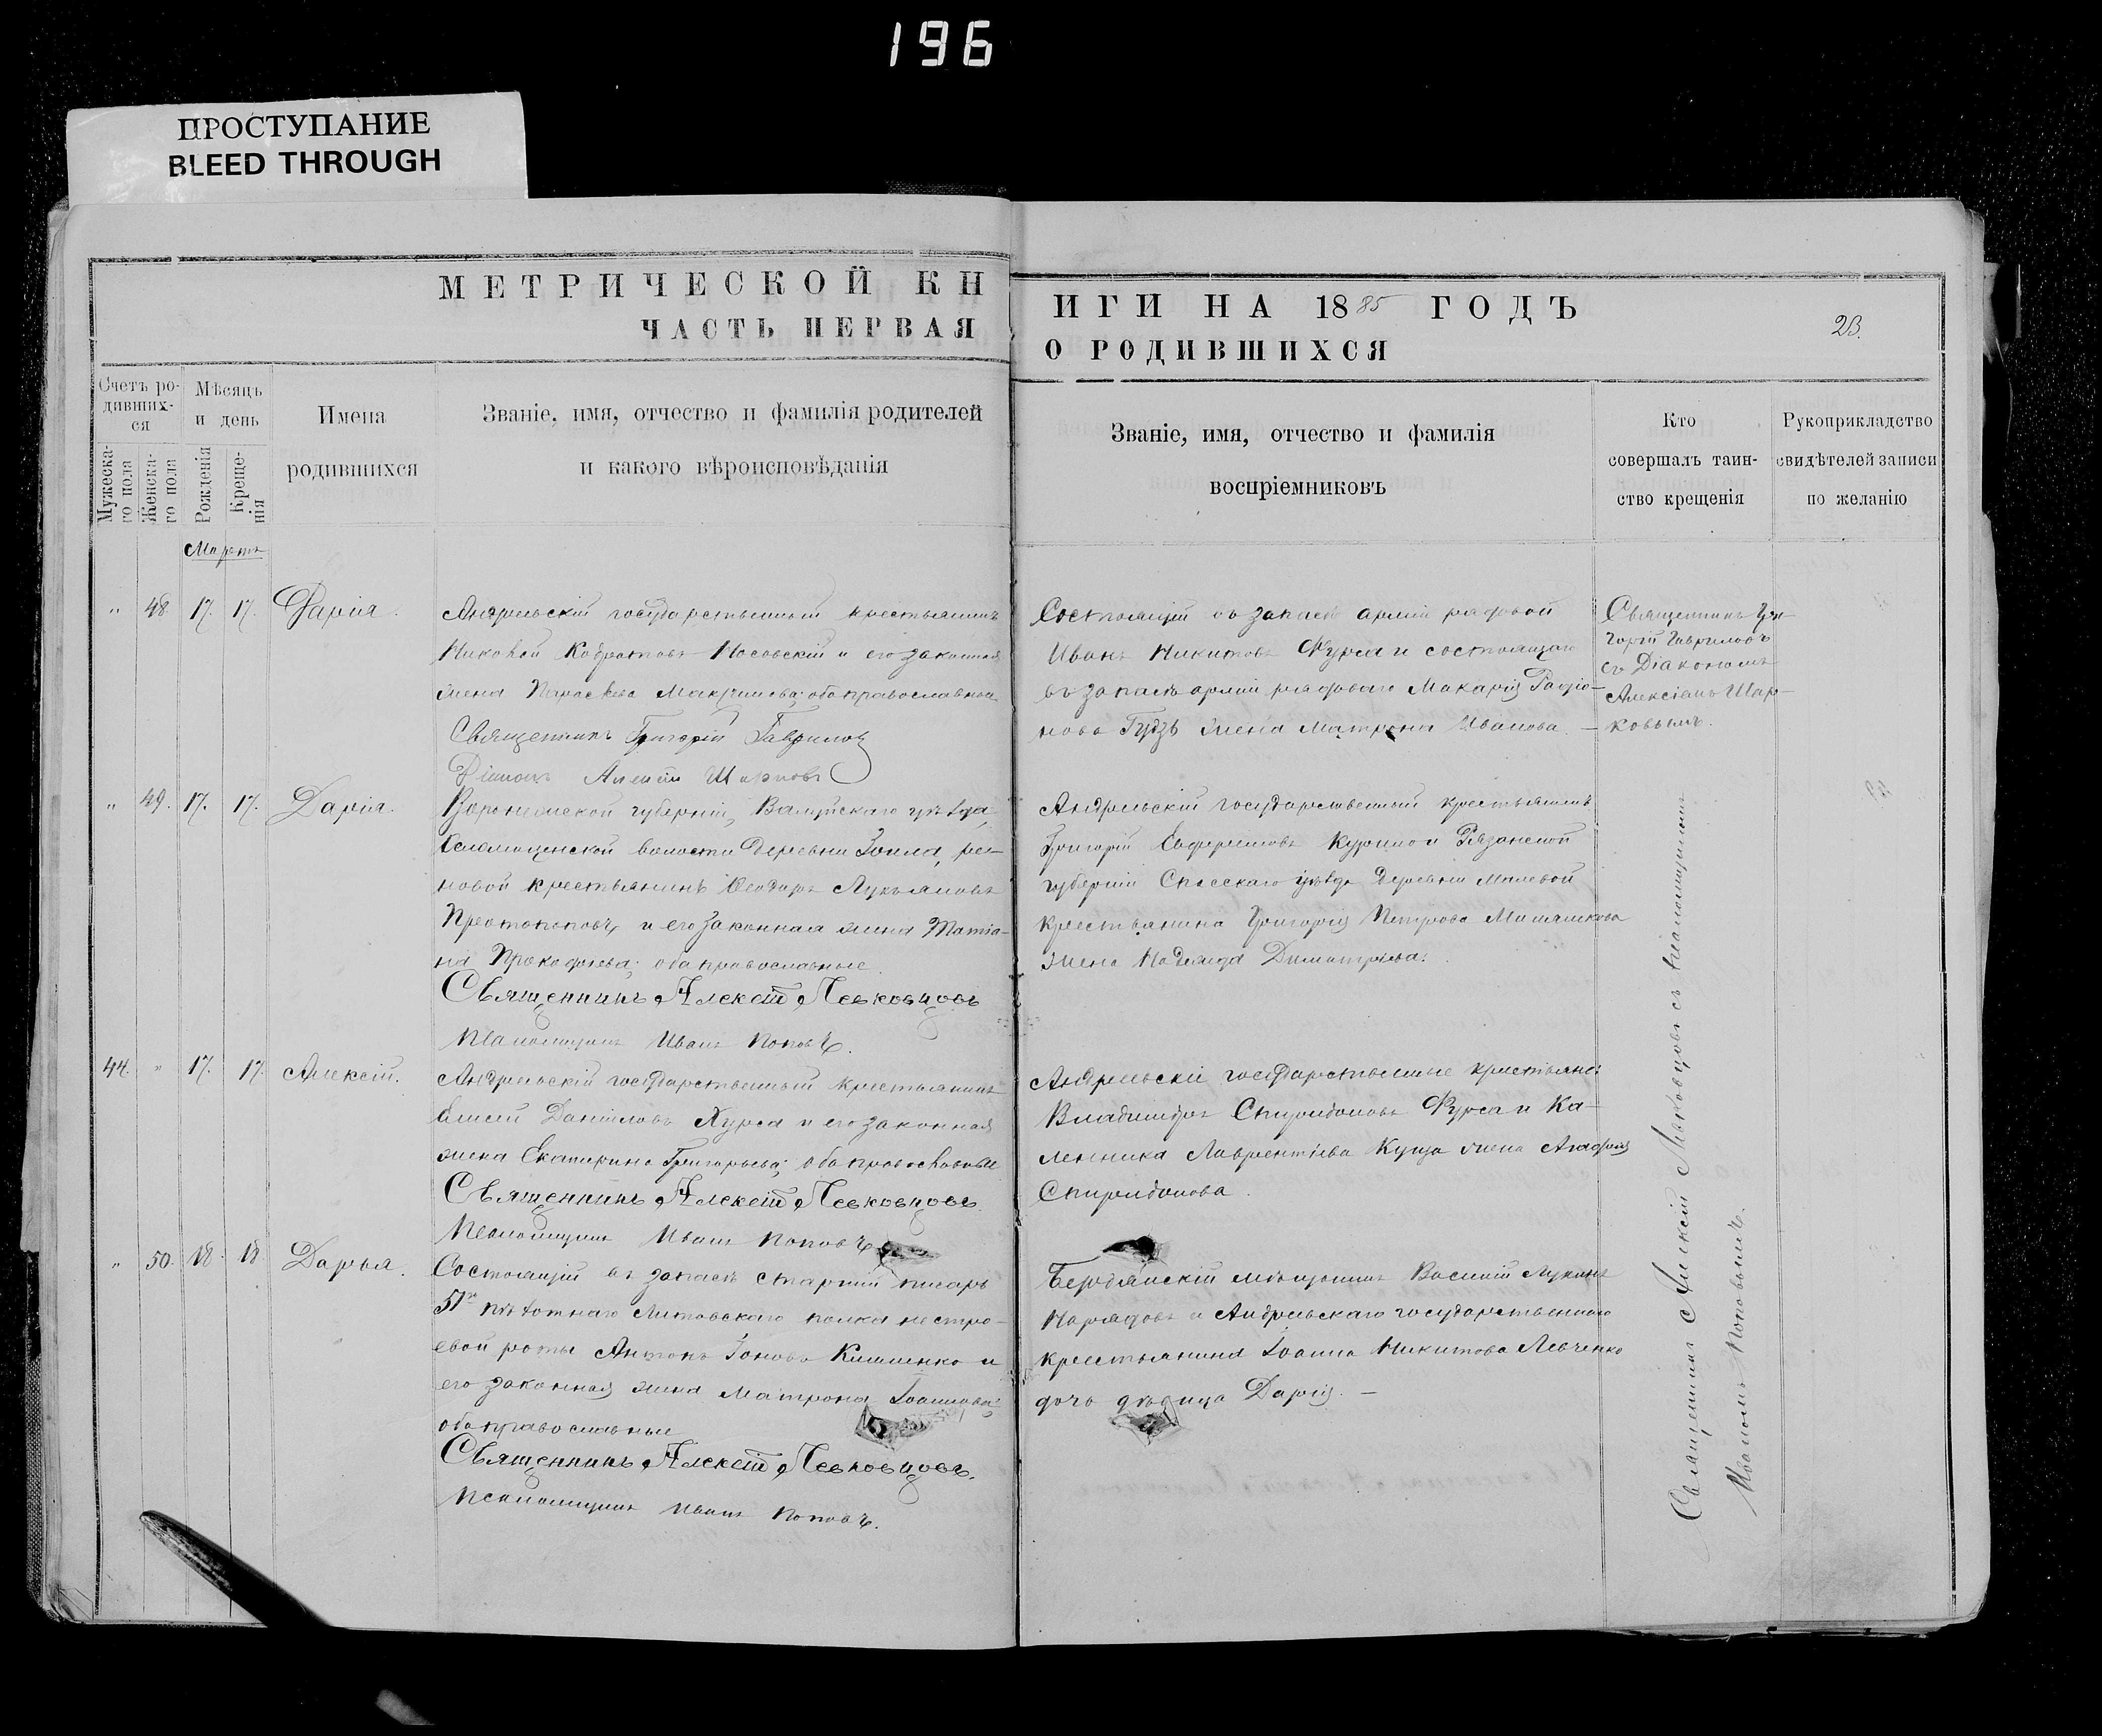 196
ПРОСТУПАНИЕ
BLEED THROUGH
МЕТРИЧЕСКОЙ КН
ИГИ НА 1885 ГОДЪ
ЧАСТЬ ПЕРВАЯ
О РОДИВШИХСЯ
23.
Счетъ ро-
дивших-
ся
Мужеска-
го пола
Женска-
го пола
Мѣсяцъ
и день
Рожденія
Креще-
нія
Имена
родившихся
Званіе, имя, отчество и фамилія родителей
и какого вѣроисповѣданія
Званіе, имя, отчество и фамилія
воспріемниковъ
Кто
совершалъ таин-
ство крещенія
Рукоприкладство
свидѣтелей записи
по желанію
Мартъ
" 48 17. 17. Дарія.
Андреевскій государственный крестьянинъ
Николай Носовскій и его законная
жена обаправославные
Священникъ Григорій Гавриловъ
Діаконъ Алексій Шарковъ
Состоящій въ запасѣ арміи рядовой
Иванъ Никитовъ Фурса и состоящаго
въ запасѣ арміи рядоваго Макарія Радіо-
нова Гудзь жена Матрона Иванова. —
Священникъ Гри-
горій Гавриловъ
съ Діакономъ
Алексіемъ Шар-
ковымъ.
" 49. 17. 17. Дарія.
Воронежской губерніи, Валуйскаго уѣзда,
волости деревни
крестьянинъ Феодоръ Лукьяновъ
Протопоповъ, и его законная жена Татіа-
на Прокофьева; оба православные.
Священникъ Алексій Левковцовъ
Псаломщикъ Иванъ Поповъ.
Андреевскій государственный крестьянинъ
Григорій и Рязанской
губерніи Спасскаго уѣзда деревни
крестьянина Григорія Петрова
жена Надежда Димитріева.
44. " 17. 17. Алексій.
Андреевскій государственный крестьянинъ
Елисей Даніиловъ и его законная
жена Екатерина Григорьева; оба православные
Священникъ Алексій Левковцовъ.
Псаломщикъ Иванъ Поповъ.
Андреевскіе государственные крестьяне:
Владиміръ Спиридоновъ Фурса и Ка-
ленника Лаврентіева жена Агафія
Спиридонова.
" 50. 18. 18. Дарья.
Состоящій въ запасѣ старшій писарь
51го пѣхотнаго Литовскаго полка нестро-
евой роты Антонъ Іоновъ и
его законная жена Матрона Іоаннова;
оба православные
Священникъ Алексій Левковцовъ.
Псаломщикъ Иванъ Поповъ.
Бердянскій мѣщанинъ Василій Лукинъ
и Андреевскаго государственнаго
крестьянина Іоанна Никитова Левченко
дочь дѣвица Дарія. —
Священникъ Алексій Левковцовъ съ псаломщикомъ
Иваномъ Поповымъ.